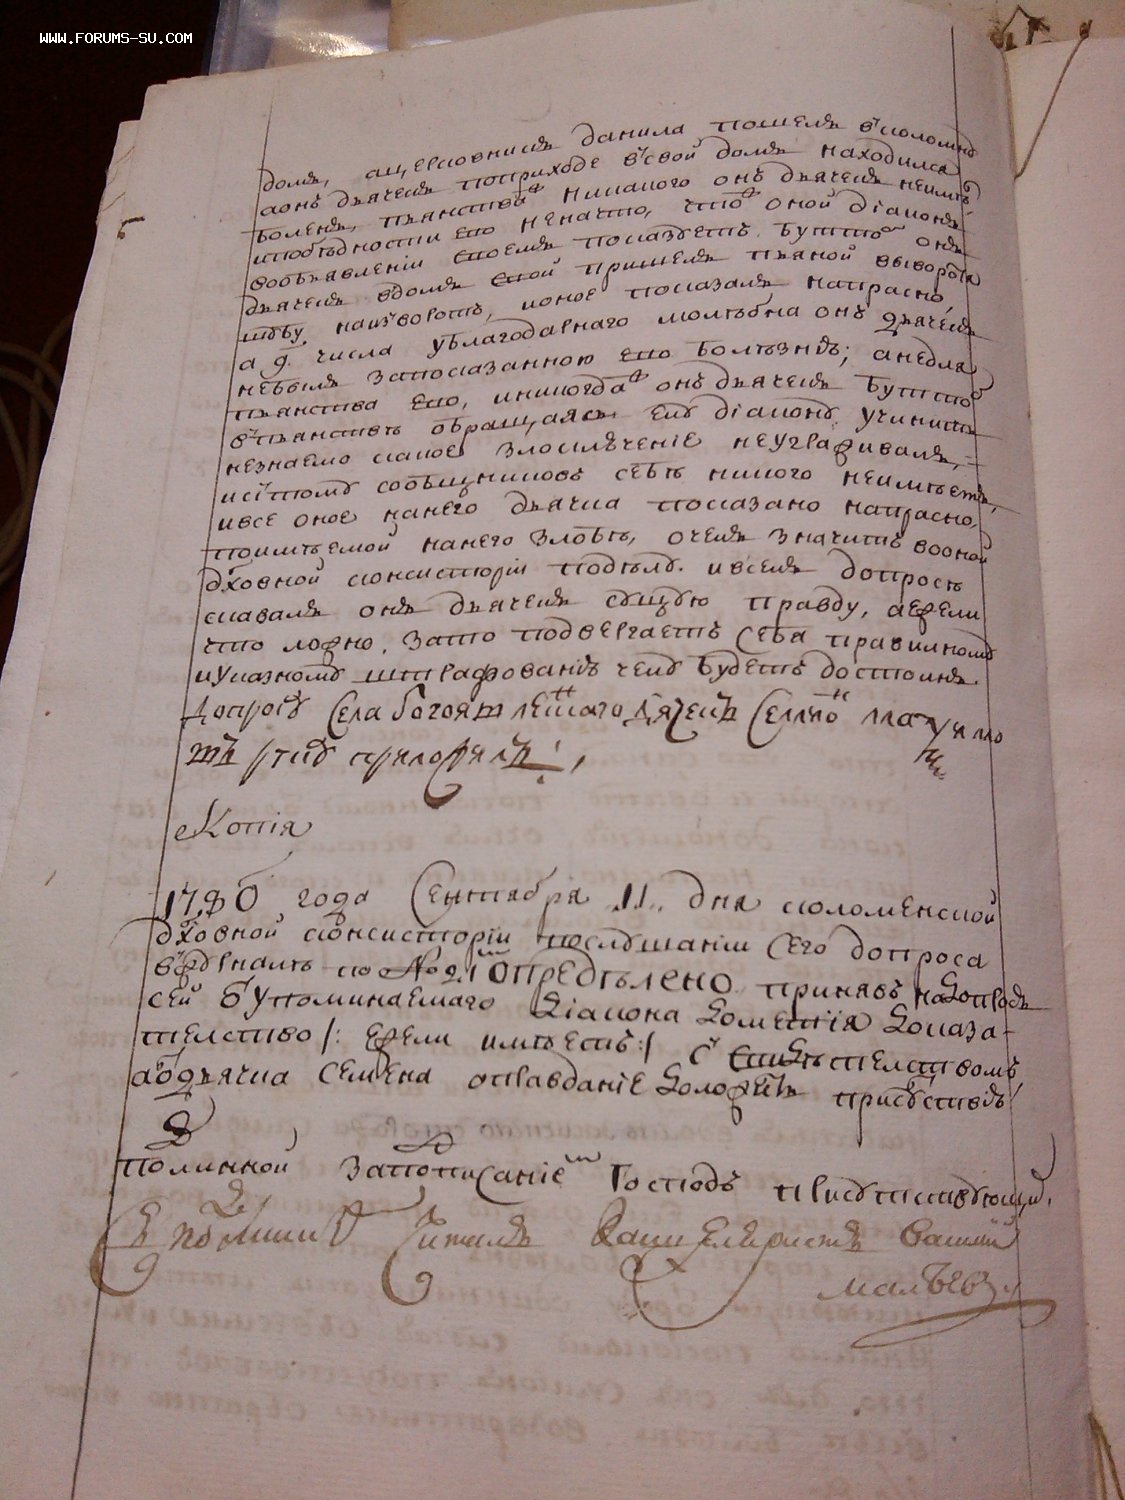 WWW.FORUMS-SU.COM
домъ, ацерковникъ данила пошелъ вколомнѣ
аонъ дьячекъ поприходе всвой домъ находился
боленъ, пьянства никакого онъ дьячекъ неимѣ
июбѣдности ево неначто, что оной діаконъ
вообъявленіи своемъ показуетъ бутто онъ
дьячекъ вдомъ свой пришелъ пьяной выворотя
шубу наизворотъ, ионое показалъ напрасно,
а 9 числа ублагодарнаго молѣбна онъ дьячекъ
небылъ запоказанною ево болѣзнію; анедля
пьянства ево, иникогда онъ дьячекъ бутто
впьянствѣ обращаясь ему діакону учинить
незнаемо какое злоключеніе неугрживалъ,
иктому сообщниковъ себѣ никого неимѣетъ,
ивсе оное нанего дьячка показано напрасно,
поимѣемой нанего злобѣ, очемъ значитъ воной
духовной консисторіи поделу. ивсемъ допросѣ
сказалъ онъ дьячекъ сущую правду, аежели
что ложно, зато подвергаетъ себя правилному
иуказному штрафованію чему будетъ достоинъ.
Допросу села богоявленского дячекъ семено
руку приложилъ
Копія
1780 года Сентября 11 дня коломенской
духовной консисторіи послушаніи сего допроса
вжурналѣ по № 21 опредѣлено принявъ
сей упоминаемаго діакона дометія доказа-
телство /: ежели имѣетъ :/ съ свидѣтелствомъ
аодьячка семена оправданіе доложить присудствію
подлинной заподписаніемъ Господъ присутствующихъ
Съ подлиннымъ читалъ канцеляристъ
малѣевъ